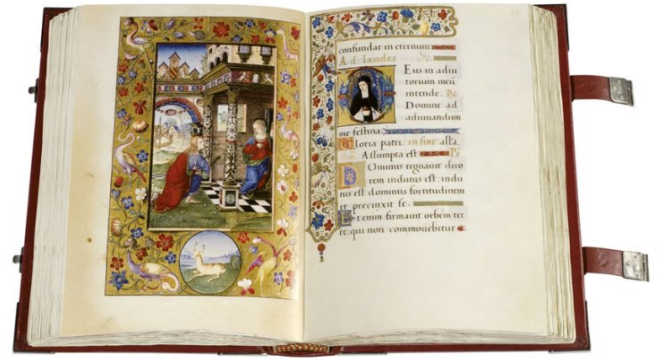 confundar in eternum
Ad laudes
Eus in adiu
torium meū
intende. De
Domine ad
adiuuandum
me festina
Gloria patri. in fine all'a.
Assumpta est
Ominus regnauit deco
rem indutus est indu
tus est dominus fortitudinem
et precinxit se.
Etenim firmauit orbem ter
re: qui non commouebitur